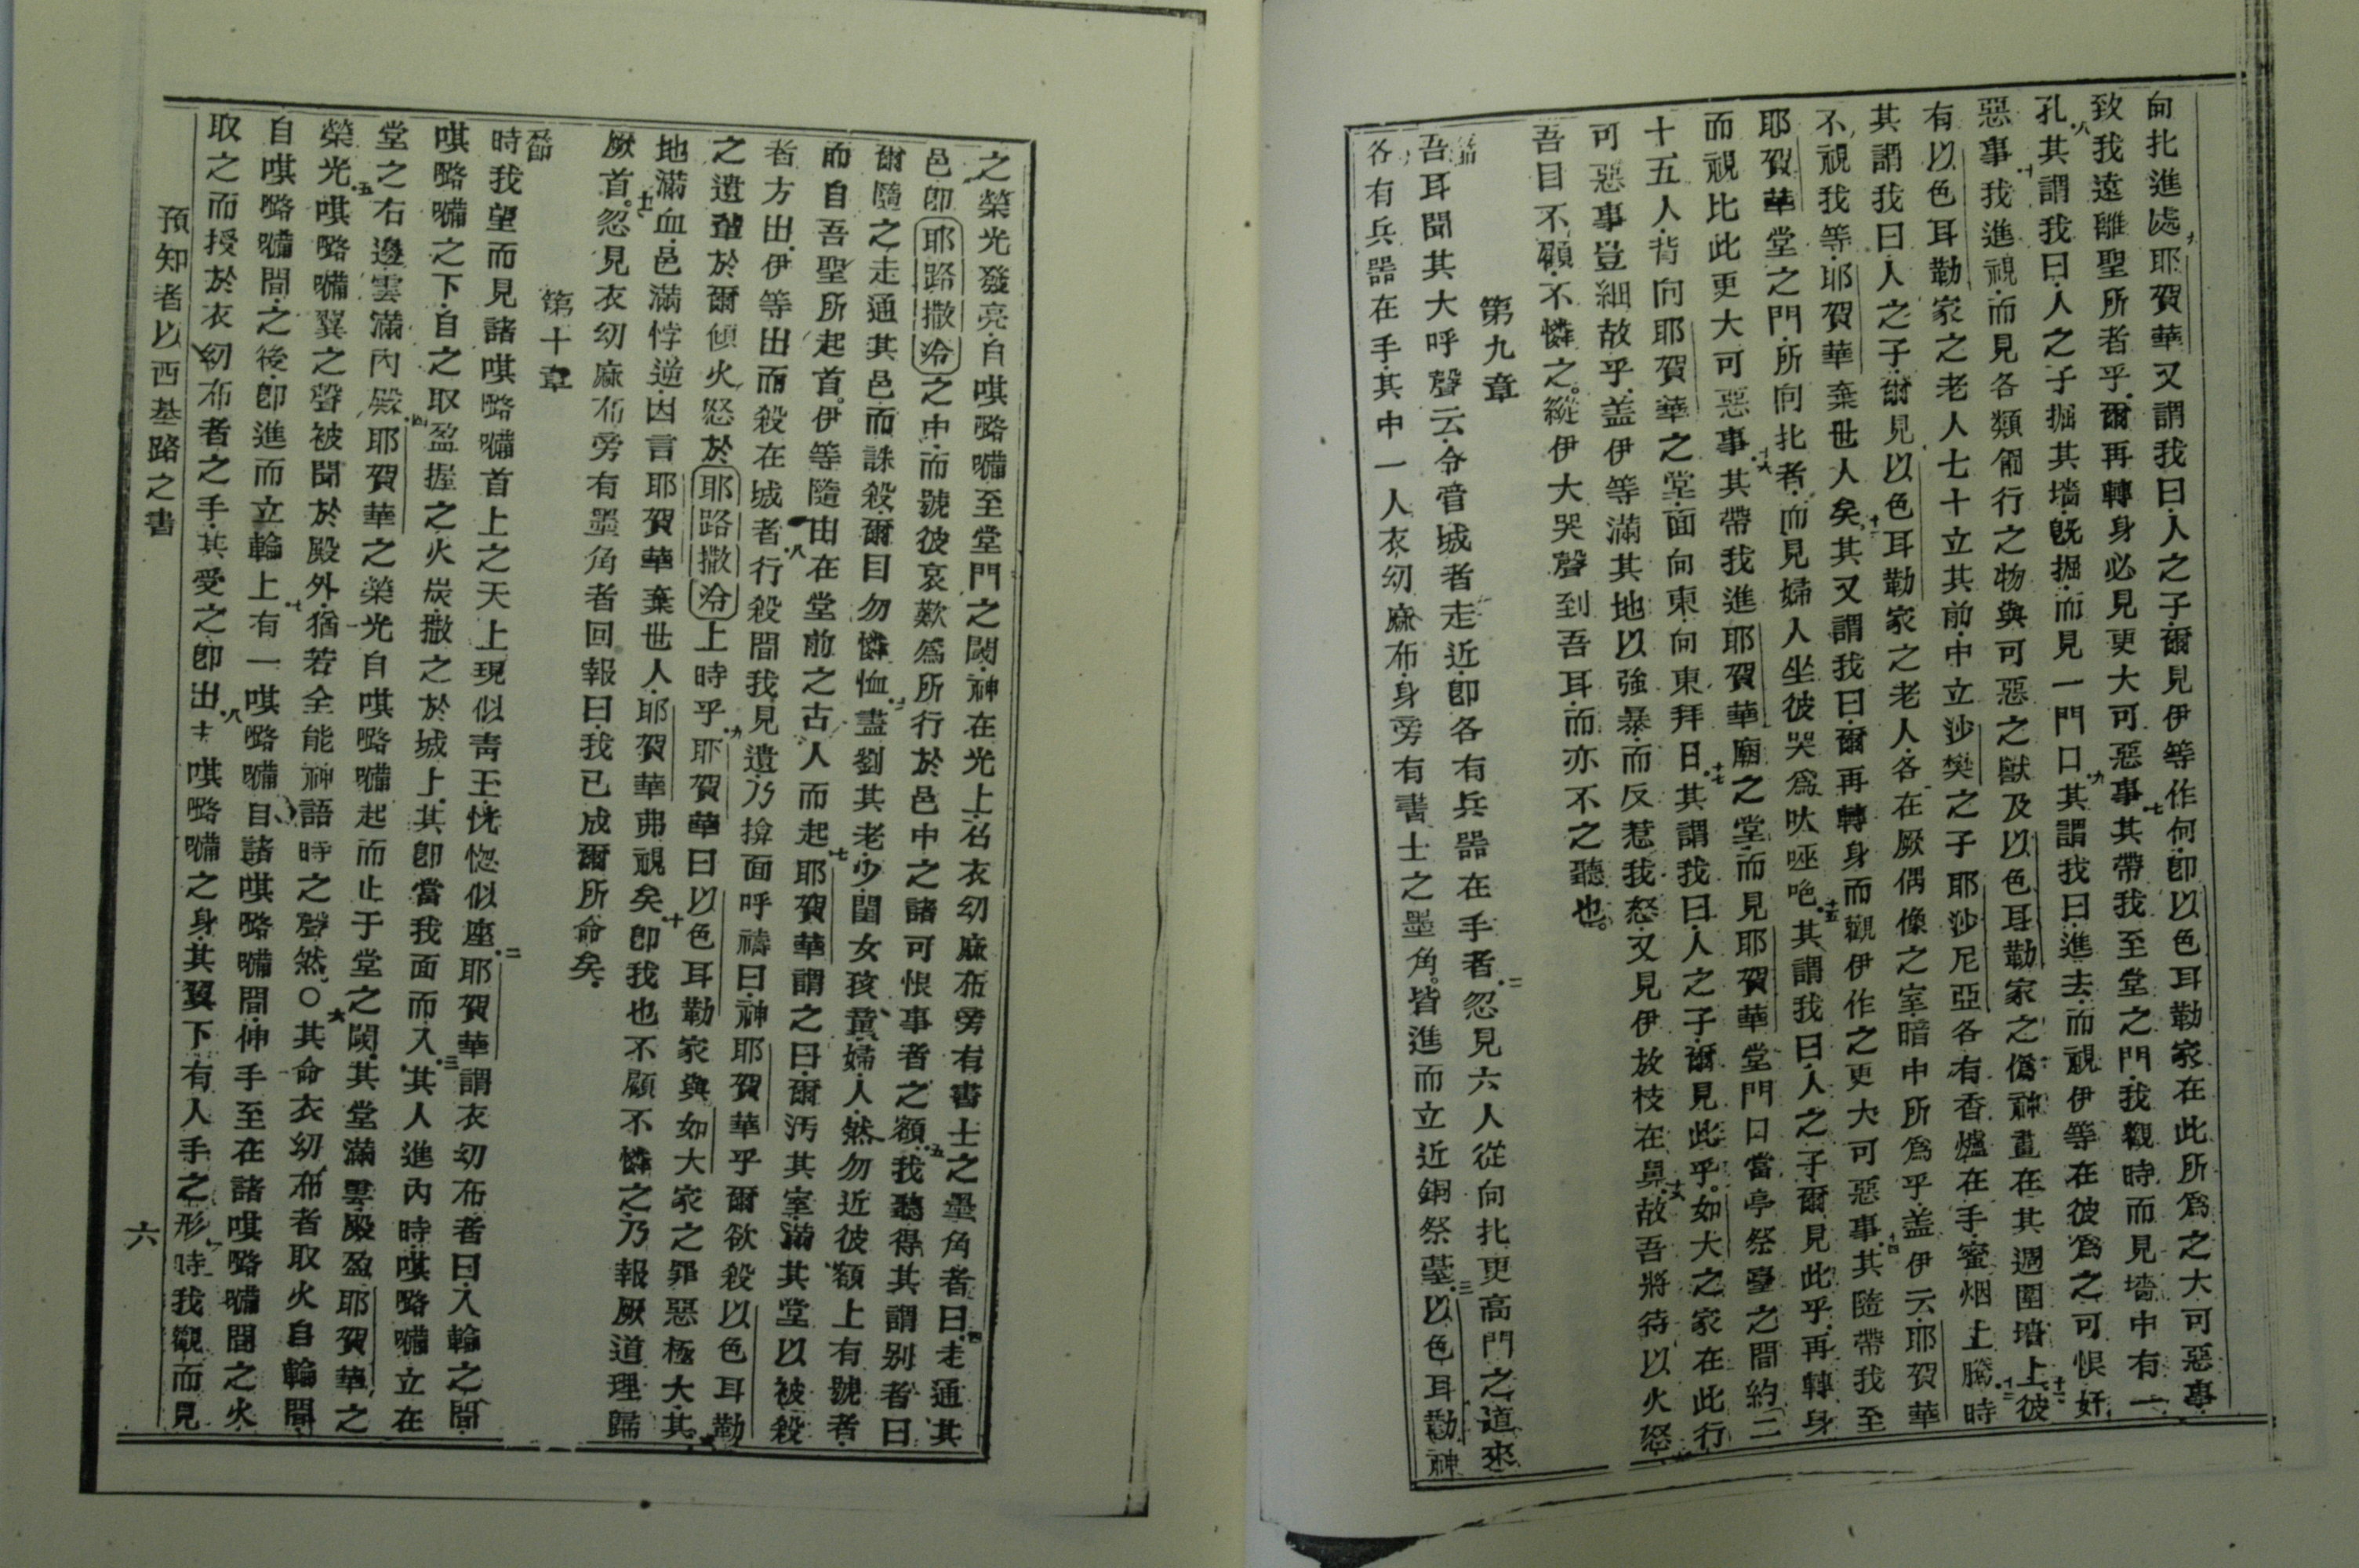 向北進處耶賀華又謂我曰人之子爾見伊等作何卽以色耳勒家在此所爲之大可惡事
致我遠離聖所者乎爾再轉身必見更大可惡事七其帶我至堂之門我觀時而見墻中有一
孔八其謂我曰人之子掘其墻旣掘而見一門口九其謂我曰進去而視伊等在彼爲之可恨奸
惡事十我進視而見各類匍行之物與可惡之獸及以色耳勒家之偽神畫在其週圍墻上十一彼
有以色耳勒家之老人七十立其前中立沙樊之子耶沙尼亞各有香爐在手蜜烟上騰十二時
其謂我曰人之子爾見以色耳勒家之老人各在厥偶像之室暗中所爲乎盖伊云耶賀華
不視我等耶賀華棄世人矣十三其又謂我曰爾再轉身而觀伊作之更大可惡事十四其隨帶我至
耶賀華堂之門所向北者而見婦人坐彼哭爲㕭唑𠲎十五其謂我曰人之子爾見此乎再轉身
而視比此更大可惡事十六其帶我進耶賀華廟之堂而見耶賀華堂門口當亭祭臺之間約二
十五人背向耶賀華之堂面向東向東拜日十七其謂我曰人之子爾見此乎如大之家在此行
可惡事豈細故乎盖伊等滿其地以強暴而反惹我怒又見伊放枝在鼻十八故吾將待以火怒
吾目不顧不憐之縱伊大哭聲到吾耳而亦不之聽也
第九章
節
吾耳聞其大呼聲云令管城者走近卽各有兵器在手者二忽見六人從向北更高門之道來
各有兵器在手其中一人衣幼麻布身旁有書士之墨角皆進而立近銅祭臺三以色耳勒神
之榮光發亮自㖵𠸄𡃩至堂門之閾神在光上召衣幼麻布旁有書士之墨角者曰四走通其
邑卽耶路撒冷之中而號彼哀歎爲所行於邑中之諸可恨事者之額五我聽得其謂別者曰
爾隨之走通其邑而誅殺爾目勿憐恤六盡劉其老少閨女孩童婦人然勿近彼額上有號者
而自吾聖所起首伊等隨由在堂前之古人而起七耶賀華謂之曰爾汚其室滿其堂以被殺
者方出伊等出而殺在城者八行殺間我見遺乃揜面呼禱曰神耶賀華乎爾欲殺以色耳勒
之遺輩於爾傾火怒於耶路撒冷上時乎九耶賀華曰以色耳勒家與如大家之罪惡極大其
地滿血邑滿悖逆因言耶賀華棄世人耶賀華弗視矣十卽我也不顧不憐之乃報厥道理歸
厥首十一忽見衣幼麻布旁有墨角者回報曰我已成爾所命矣
第十章
節
時我望而見諸㖵𠸄𡃩首上之天上現似靑玉恍惚似座二耶賀華謂衣幼布者曰入輪之間
㖵𠸄𡃩之下自之取盈握之火炭撒之於城上其卽當我面而入三其人進內時㖵𠸄𡃩立在
堂之右邊雲滿內殿四耶賀華之榮光自㖵𠸄𡃩起而止于堂之閾其堂滿雲殿盈耶賀華之
榮光五㖵𠸄𡃩翼之聲被聞於殿外猶若全能神語時之聲然○六其命衣幼布者取火自輪間
自㖵𠸄𡃩間之後卽進而立輪上七有一㖵𠸄𡃩自諸㖵𠸄𡃩間伸手至在諸㖵𠸄𡃩間之火
取之而授於衣幼布者之手其受之卽出八㖵𠸄𡃩之身其翼下有人手之形九時我觀而見
預知者以西基路之書
六